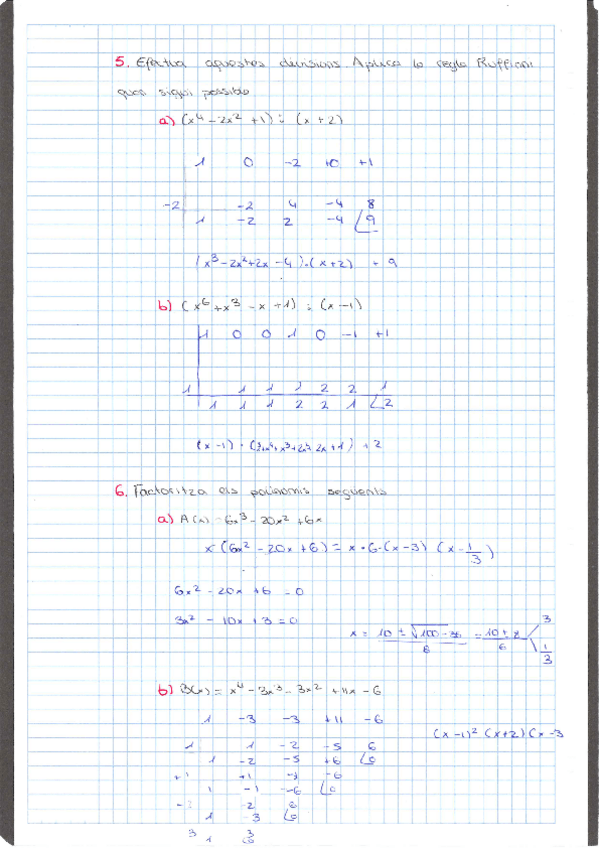 5. Efectua aquestes divisions. Aplica la regla Ruffini
quan sigui possible.
a) (x⁴ - 2x² + 1) : (x + 2)
1 0 -2 +0 +1
-2 -2 4 -4 8
1 -2 2 -4 9
(x³ - 2x² + 2x - 4) · (x + 2) + 9
b) (x⁶ + x³ - x + 1) : (x - 1)
1 0 0 1 0 -1 +1
1 1 1 1 2 2 1
1 1 1 2 2 1 2
(x - 1) · + 2
6. Factoritza els polinomis següents
a) A(x) = 6x³ - 20x² + 6x
x (6x² - 20x + 6) = x · 6 · (x - 3) (x - 1/3)
6x² - 20x + 6 = 0
3x² - 10x + 3 = 0
x = 10 ± √100 - 36 / 6 = 10 ± 8 / 6 3 1/3
b) B(x) = x⁴ - 3x³ - 3x² + 11x - 6
1 -3 -3 +11 -6
(x - 1)² (x + 2) (x - 3
1 1 -2 -5 6
1 -2 -5 +6 0
+1 +1 -1 -6
1 -1 -6 0
-2 -2 6
1 -3 0
3 3
1 0